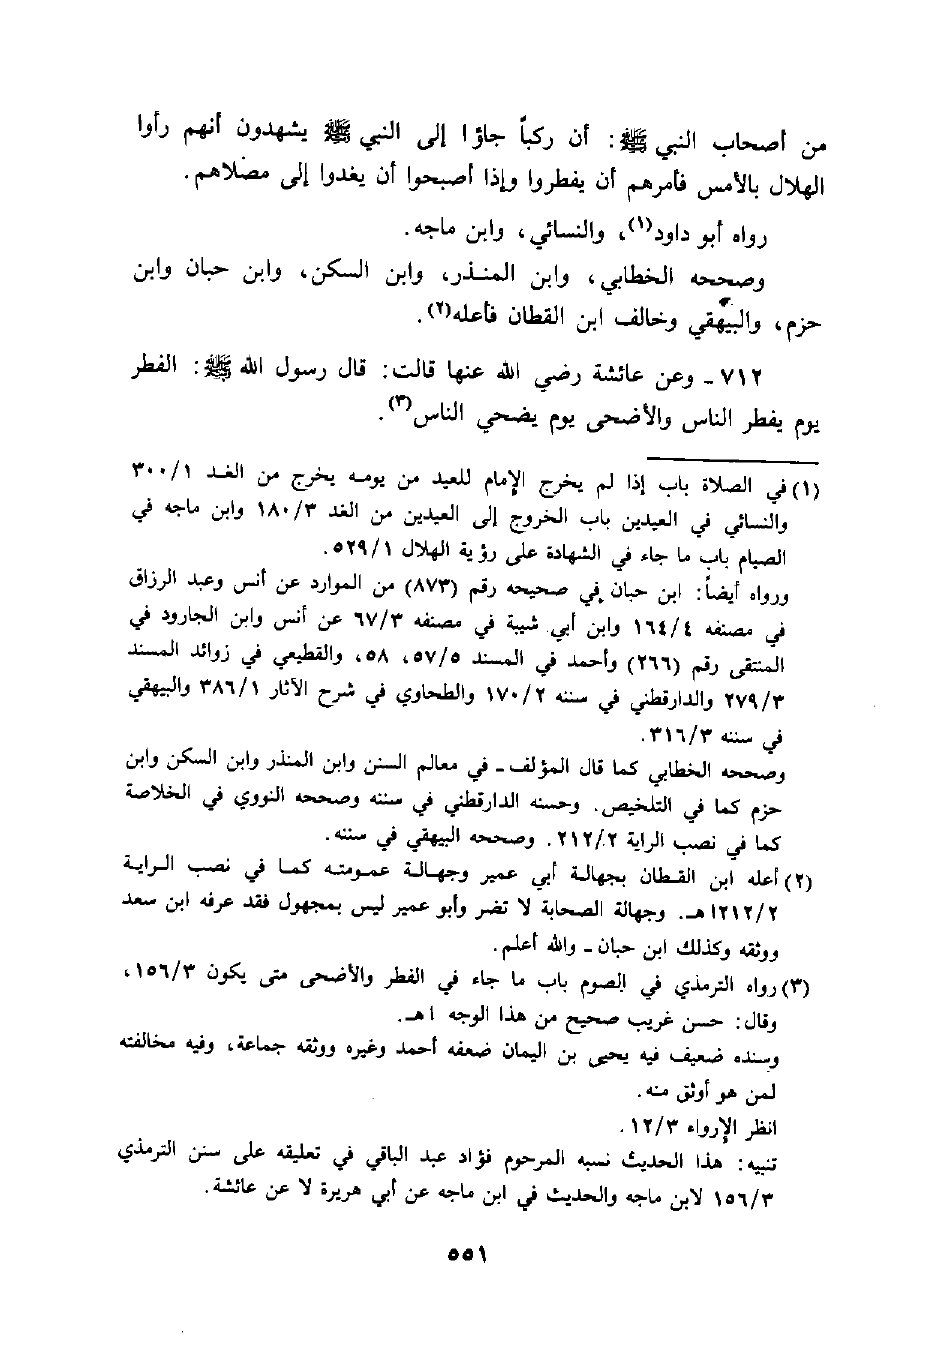 من أصحاب النبي ﷺ: أن ركباً جاؤا إلى النبي ﷺ يشهدون أنهم رأوا
الهلال بالأمس فأمرهم أن يفطروا وإذا أصبحوا أن يغدوا إلى مصلاهم.
رواه أبو داود(١)، والنسائي، وابن ماجه.
وصححه الخطابي، وابن المنذر، وابن السكن، وابن حبان وابن
حزم، والبيهقي وخالف ابن القطان فأعله(٢).
٧١٢ - وعن عائشة رضي الله عنها قالت: قال رسول الله ﷺ: الفطر
يوم يفطر الناس والأضحى يوم يضحي الناس(٣).
(١) في الصلاة باب إذا لم يخرج الإمام للعيد من يومه يخرج من الغد ٣٠٠/١
والنسائي في العيدين باب الخروج إلى العيدين من الغد ١٨٠/٣ وابن ماجه في
الصيام باب ما جاء في الشهادة على رؤية الهلال ٥٢٩/١.
ورواه أيضاً: ابن حبان في صحيحه رقم (٨٧٣) من الموارد عن أنس وعبد الرزاق
في مصنفه ١٦٤/٤ وابن أبي شيبة في مصنفه ٦٧/٣ عن أنس وابن الجارود في
المنتقى رقم (٢٦٦) وأحمد في المسند ٥٧/٥، ٥٨، والقطيعي في زوائد المسند
٢٧٩/٣ والدارقطني في سننه ١٧٠/٢ والطحاوي في شرح الآثار ٣٨٦/١ والبيهقي
في سننه ٣١٦/٣.
وصححه الخطابي كما قال المؤلف - في معالم السنن وابن المنذر وابن السكن وابن
حزم كما في التلخيص. وحسنه الدارقطني في سننه وصححه النووي في الخلاصة
كما في نصب الراية ٢١٢/٢. وصححه البيهقي في سننه.
(٢) أعله ابن القطان بجهالة أبي عمير وجهالة عمومته كما في نصب الراية
٢١٢/٢ اهـ. وجهالة الصحابة لا تضر وأبو عمير ليس بمجهول فقد عرفه ابن سعد
ووثقه وكذلك ابن حبان - والله أعلم.
(٣) رواه الترمذي في الصوم باب ما جاء في الفطر والأضحى متى يكون ١٥٦/٣،
وقال: حسن غريب صحيح من هذا الوجه اهـ.
وسنده ضعيف فيه يحيى بن اليمان ضعفه أحمد وغيره ووثقه جماعة، وفيه مخالفته
لمن هو أوثق منه.
انظر الإرواء ١٢/٣.
تنبيه: هذا الحديث نسبه المرحوم فؤاد عبد الباقي في تعليقه على سنن الترمذي
١٥٦/٣ لابن ماجه والحديث في ابن ماجه عن أبي هريرة لا عن عائشة.
٥٥١